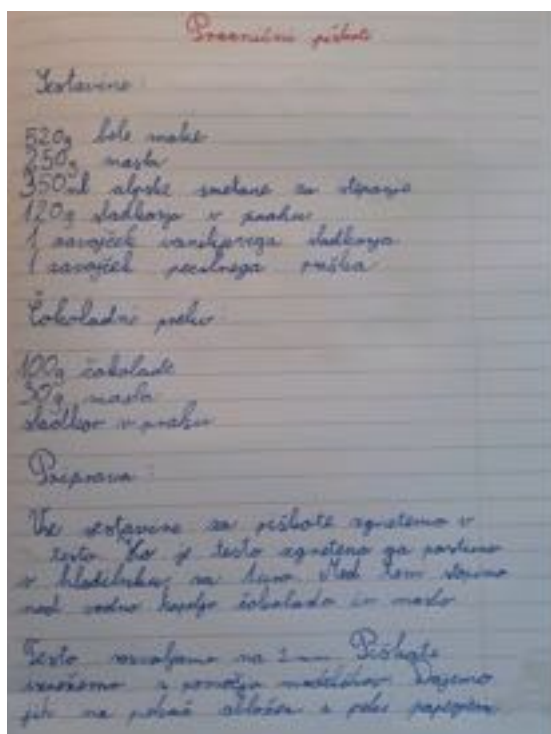 Praznični piškoti
Sestavine:
520g bele moke
250g masla
350ml alpske smetane za stepanje
120g sladkorja v prahu
1 zavojček vanilijevega sladkorja
1 zavojček pecilnega praška
Čokoladni preliv:
100g čokolade
30g masla
sladkor v prahu
Priprava:
Vse sestavine za piškote zgnetemo v
testo. Ko je testo zgneteno ga postavimo
v hladilnik za 1 uro. Med tem stopimo
nad vodno kopeljo čokolado in maslo
Testo razvaljamo na 2 mm Piškote
izrežemo s pomočjo modelčkov. Dajemo
jih na pekač obložen s peki papirjem